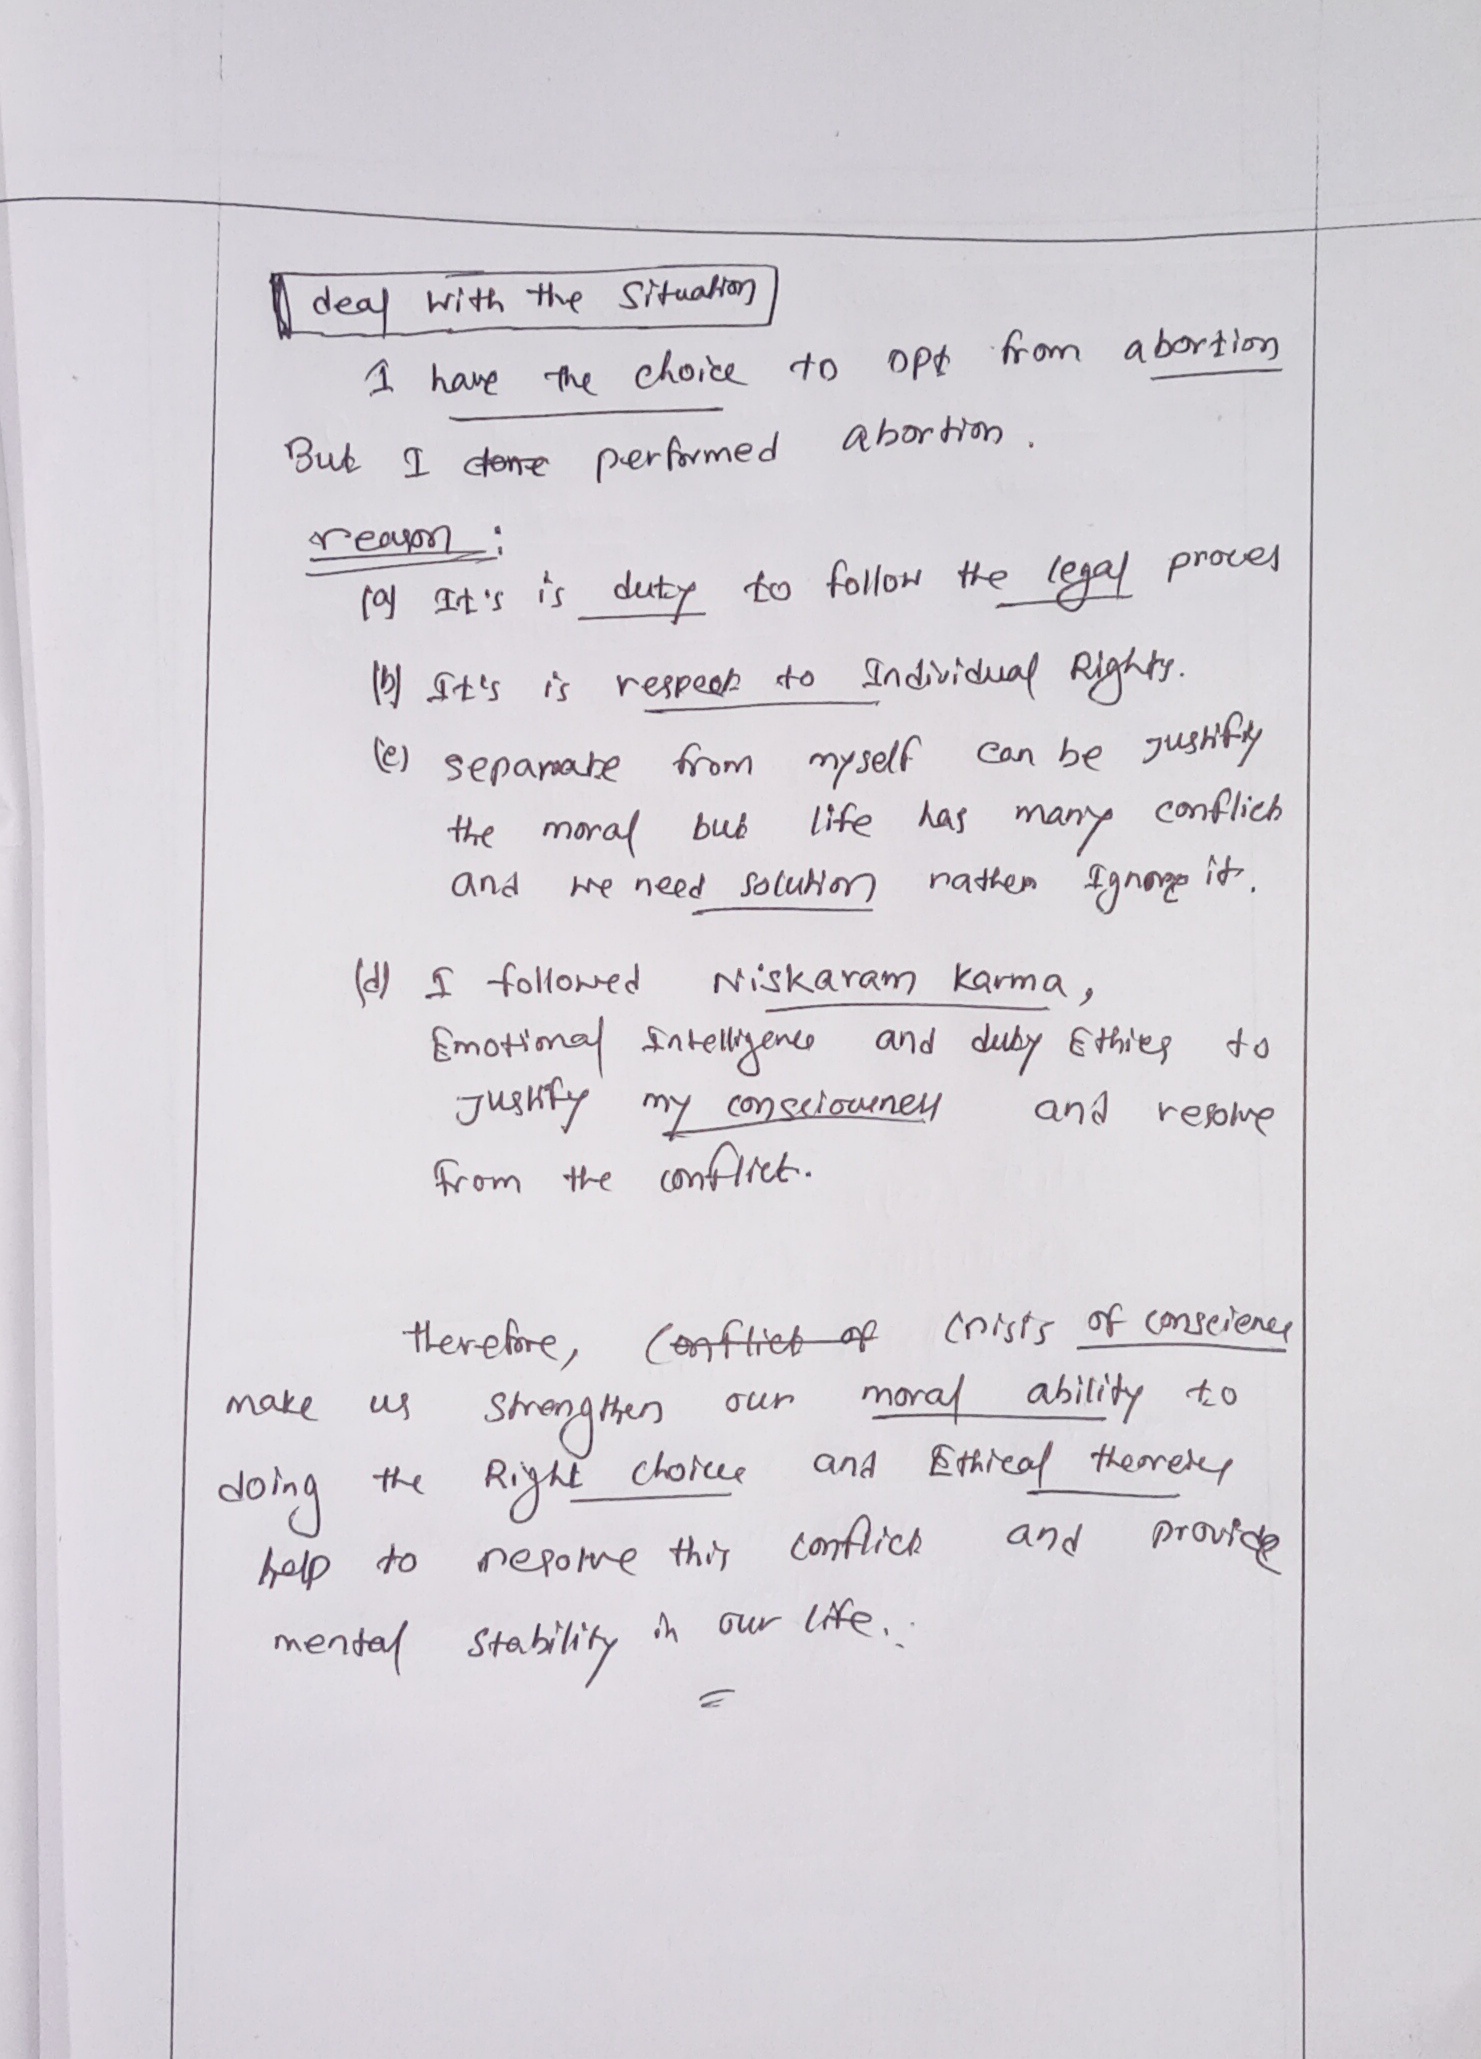 deal with the Situation
I have the choice to opt from abortion
But I done performed abortion.
reason:
(a) It's is duty to follow the legal proves
(b) It's is respect to Individual Rights.
(c) separate from myself can be justify
the moral but life has many conflict
and we need solution rather Ignore it.
(d) I followed Niskaram Karma,
Emotional Intelligence and duty Ethics to
Justify my consciousness and resolve
from the conflict.
therefore, Conflict of Crisis of conscience
make us strengthen our moral ability to
doing the Right choice and Ethical theories
help to resolve this conflict and provide
mental stability in our life.